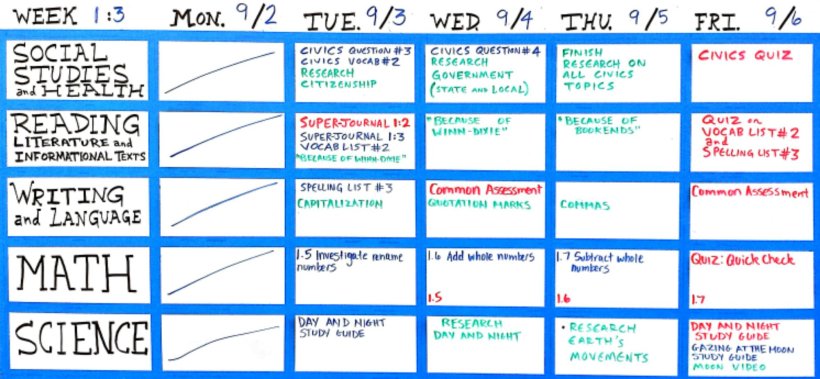 WEEK 1:3 MON. 9/2 TUE. 9/3 WED. 9/4 THU. 9/5 FRI. 9/6
SOCIAL
STUDIES
and HEALTH
CIVICS QUESTION #3
CIVICS VOCAB #2
RESEARCH
CITIZENSHIP
CIVICS QUESTION #4
RESEARCH
GOVERNMENT
(STATE AND LOCAL)
FINISH
RESEARCH ON
ALL CIVICS
TOPICS
CIVICS QUIZ
READING
LITERATURE and
INFORMATIONAL TEXTS
SUPER-JOURNAL 1:2
SUPER-JOURNAL 1:3
VOCAB LIST #2
"BECAUSE OF WINN-DIXIE"
"BECAUSE OF
WINN-DIXIE"
"BECAUSE OF
BOOKENDS"
QUIZ on
VOCAB LIST #2
and
SPELLING LIST #3
WRITING
and LANGUAGE
SPELLING LIST #3
CAPITALIZATION
Common Assessment
QUOTATION MARKS
COMMAS
Common Assessment
MATH
1.5 Investigate rename
numbers
1.6 Add whole numbers
1.5
1.7 Subtract whole
numbers
1.6
Quiz: Quick Check
1.7
SCIENCE
DAY AND NIGHT
STUDY GUIDE
RESEARCH
DAY AND NIGHT
• RESEARCH
EARTH'S
MOVEMENTS
DAY AND NIGHT
STUDY GUIDE
GAZING AT THE MOON
STUDY GUIDE
MOON VIDEO